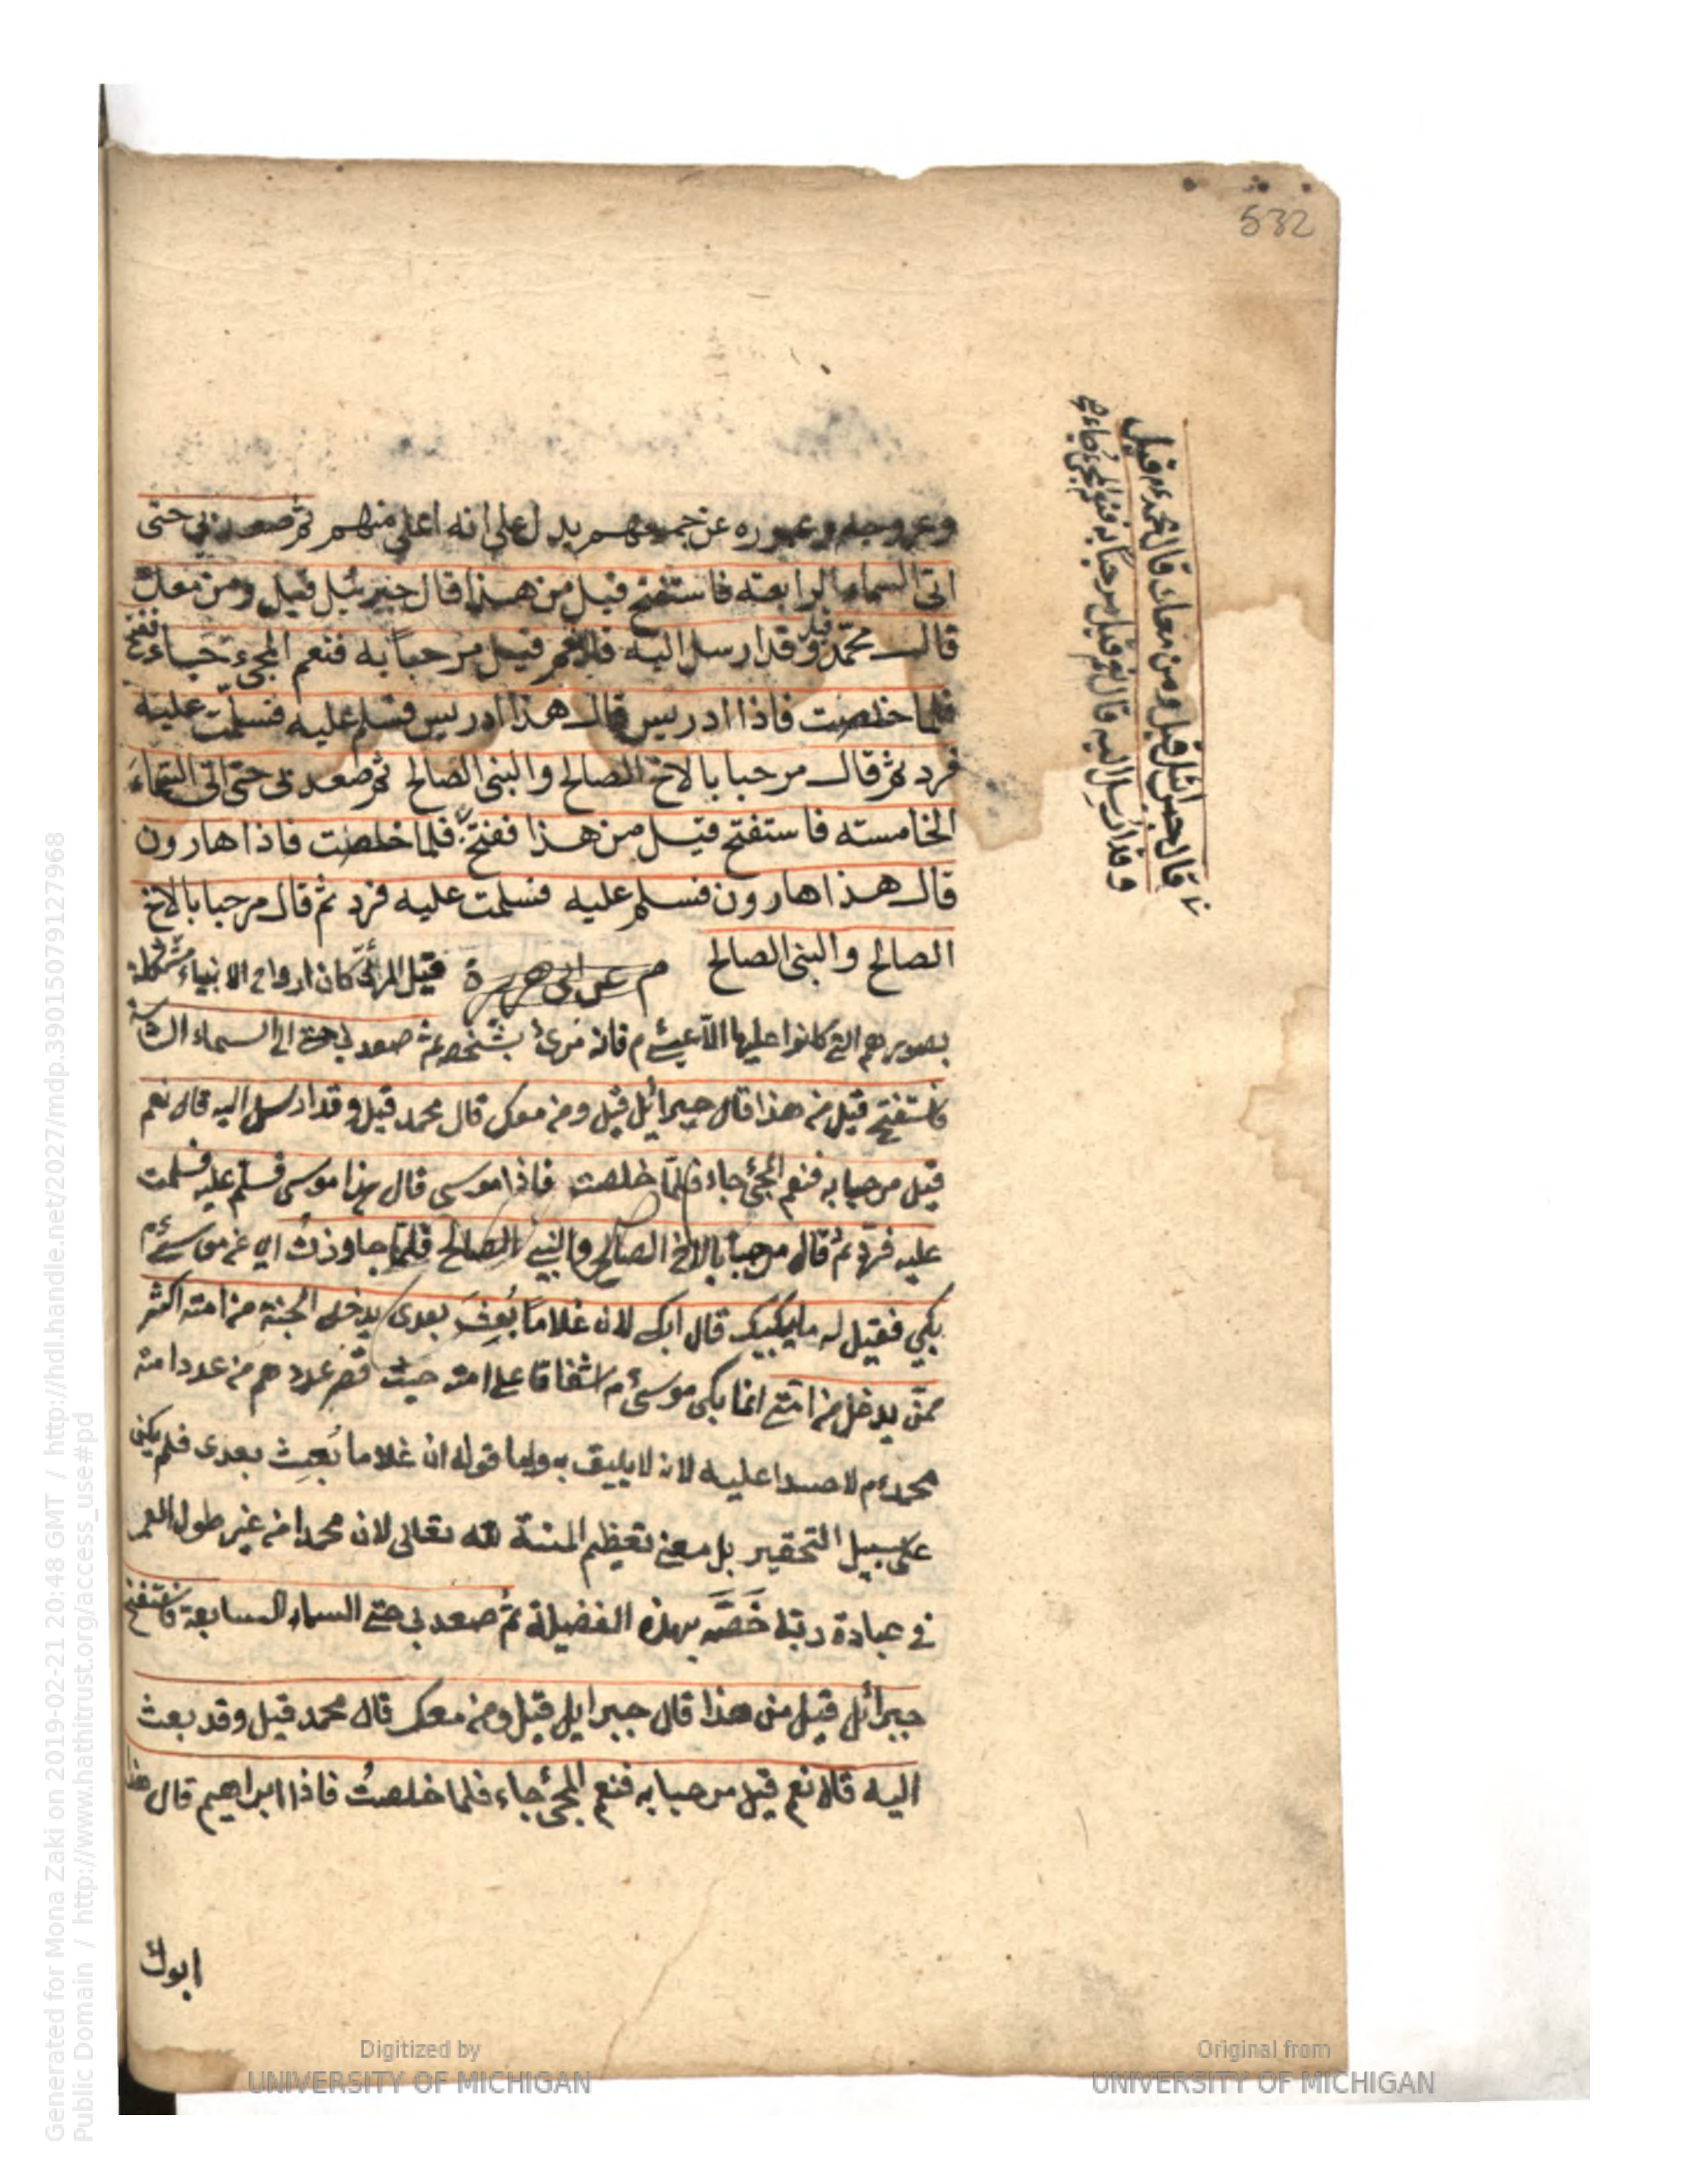 532
وعروجه وعبوره عن جميعهم يدل على انه اعلى منهم ثم صعد بي حتى
اتى السماء الرابعة فاستفتح قيل من هذا قال جبرئيل قيل ومن معك
قال محمد قيل وقد ارسل اليه قال نعم قيل مرحبا به فنعم المجئ جاء ففتح
فلما خلصت فاذا ادريس قال هذا ادريس فسلم عليه فسلمت عليه
فرد ثم قال مرحبا بالاخ الصالح والنبى الصالح ثم صعد بى حتى اتى السماء
الخامسة فاستفتح قيل من هذا ففتح فلما خلصت فاذا هارون
قال هذا هارون فسلم عليه فسلمت عليه فرد ثم قال مرحبا بالاخ
الصالح والنبى الصالح م عن ابى هريرة قيل المرئى كان ارواح الانبياء مشكلة
بصورهم التى كانوا عليها الا عيسى م فانه مرئ بشخصه ثم صعد بى حتى الى السماء
فاستفتح قيل من هذا قال جبرائيل قيل ومن معك قال محمد قيل وقد ارسل اليه قال نعم
قيل مرحبا به فنعم المجئ جاء فلما خلصت فاذا موسى قال هذا موسى فسلم عليه فسلمت
عليه فرد ثم قال مرحبا بالاخ الصالح والنبى الصالح فلما جاوزت اى عن موسى م
بكى فقيل له ما يبكيك قال ابكى لان غلاما بُعِثَ بعدى يدخل الجنة من امته اكثر
ممن يدخل من امتى انما بكى موسى م اشفاقا على امته حيث قصر عددهم من عدد امة
محمد م لا حسدا عليه لانه لا يليق به واما قوله ان غلاما بُعِث بعدى فلم يكن
على سبيل التحقير بل معنى تعظيم المنة لله تعالى لان محمدا من غير طول العمر
فى عبادة ربه خَصَّه بهذه الفضيلة ثم صعد بى حتى السماء السابعة فاستفتح
جبرائل قيل من هذا قال جبرايل قيل ومن معك قال محمد قيل وقد بعث
اليه قال نعم قيل مرحبا به فنعم المجئ جاء فلما خلصتُ فاذا ابراهيم قال هذا
ابوك
قال جبرائيل قيل ومن معك قال محمد م قيل
وقد ارسل اليه قال نعم قيل مرحبا به فنعم المجئ جاء
Generated for Mona Zaki on 2019-02-21 20:48 GMT / http://hdl.handle.net/2027/mdp.39015079127968
Public Domain / http://www.hathitrust.org/access_use#pd
Digitized by
UNIVERSITY OF MICHIGAN
Original from
UNIVERSITY OF MICHIGAN